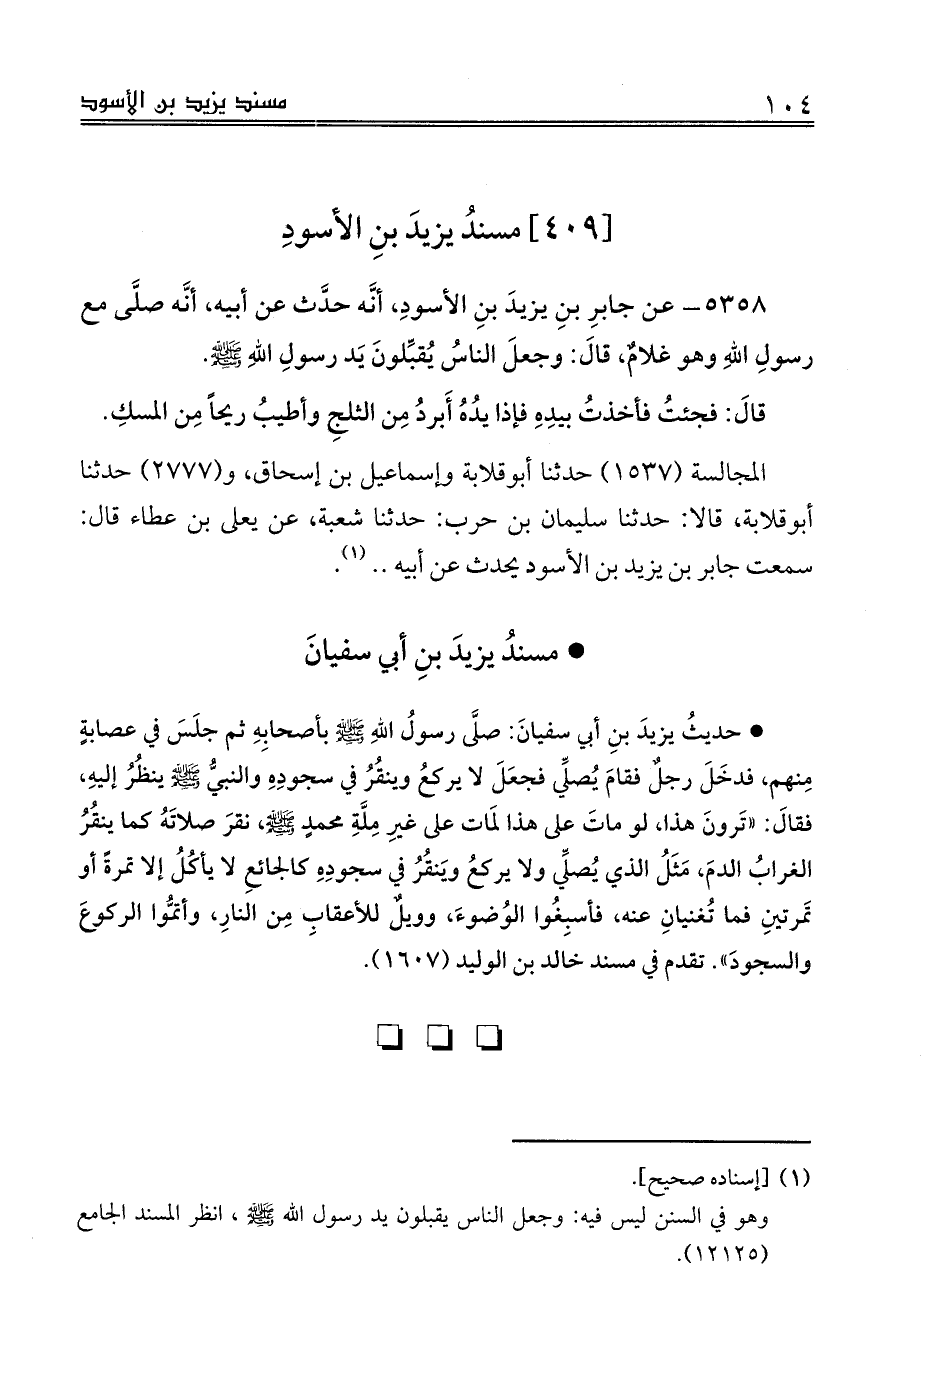 ١٠٤ مسند يزيد بن الأسود
[٤٠٩] مسندُ يزيدَ بنِ الأسودِ
٥٣٥٨ـ عن جابرِ بنِ يزيدَ بنِ الأسودِ، أنَّه حدَّث عن أبيه، أنَّه صلَّى مع
رسولِ اللهِ وهو غلامٌ، قالَ: وجعلَ الناسُ يُقبِّلونَ يَد رسولِ اللهِ ﷺ.
قالَ: فجئتُ فأخذتُ بيدِهِ فإذا يدُهُ أَبردُ مِن الثلجِ وأطيبُ ريحاً مِن المسكِ.
المجالسة (١٥٣٧) حدثنا أبوقلابة وإسماعيل بن إسحاق، و(٢٧٧٧) حدثنا
أبوقلابة، قالا: حدثنا سليمان بن حرب: حدثنا شعبة، عن يعلى بن عطاء قال:
سمعت جابر بن يزيد بن الأسود يحدث عن أبيه .. (١).
● مسندُ يزيدَ بنِ أبي سفيانَ
● حديثُ يزيدَ بنِ أبي سفيانَ: صلَّى رسولُ اللهِ ﷺ بأصحابِهِ ثم جلَسَ في عصابةٍ
مِنهم، فدخَلَ رجلٌ فقامَ يُصلِّي فجعَلَ لا يركعُ وينقُرُ في سجودِهِ والنبيُّ ﷺ ينظُرُ إليهِ،
فقالَ: «تَرونَ هذا، لو ماتَ على هذا لمات على غيرِ مِلَّةِ محمدٍ ﷺ، نقرَ صلاتَهُ كما ينقُرُ
الغرابُ الدمَ، مَثَلُ الذي يُصلِّي ولا يركعُ ويَنقُرُ في سجودِهِ كالجائعِ لا يأكُلُ إلا تمرةً أو
تمرتينِ فما تُغنيانِ عنه، فأسبِغُوا الوُضوءَ، وويلٌ للأعقابِ مِن النارِ، وأتمُّوا الركوعَ
والسجودَ». تقدم في مسند خالد بن الوليد (١٦٠٧).
(١) [إسناده صحيح].
وهو في السنن ليس فيه: وجعل الناس يقبلون يد رسول الله ﷺ ، انظر المسند الجامع
(١٢١٢٥).